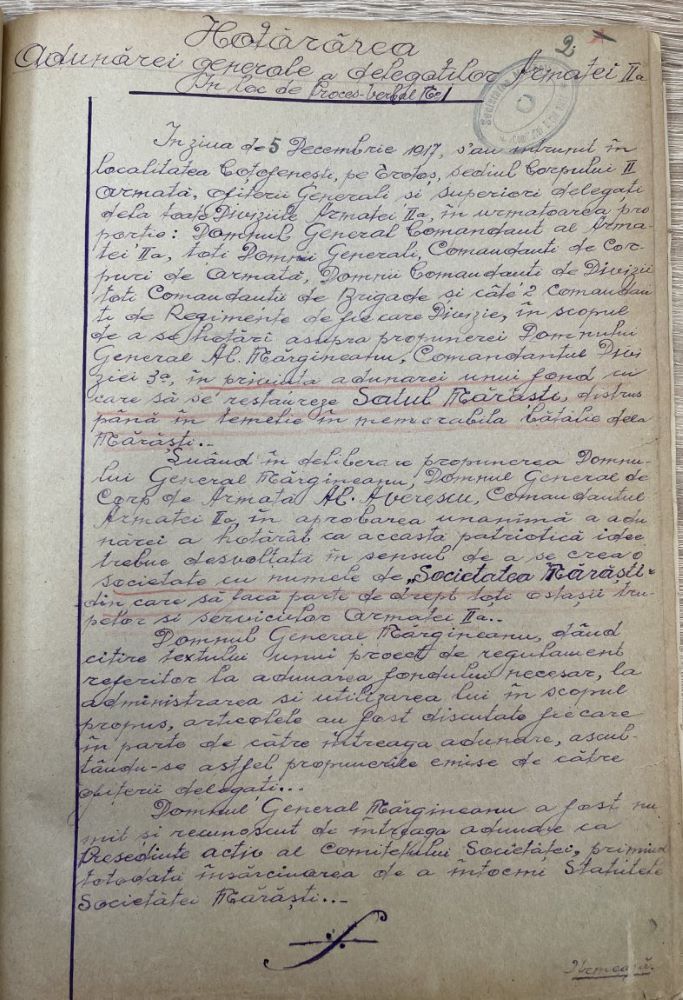 2
Hotărârea
Adunărei generale a delegaților Armatei IIa
În loc de Proces-verbal No 1
În ziua de 5 Decembrie 1917, s'au intrunit în
localitatea Coțofenești, pe Trotoș, sediul Corpului II
Armată, ofițerii Generali si superiori delegați
dela toate Diviziile Armatei IIa, în urmatoarea pro
portie: Domnul General Comandant al Arma-
tei IIa, toti Domnii Generali, Comandanti de Cor-
puri de Armată, Domnii Comandanti de Divizii
toti Comandantii de Brigade si câte 2 comandan
ti de Regimente de fie care Divizie, în scopul
de a se hotări asupra propunerei Domnului
General Al. Mărgineanu, Comandantul Divi
ziei 3a, în privinta adunarei unui fond cu
care să se restaureze Satul Mărăsti, distrus
până în temelie în memorabila bătălie dela
Mărăști..-
Luând în deliberare propunerea Domnu-
lui General Mărgineanu, Domnul General de
Corp de Armată Al. Averescu, Comandantul
Armatei IIa, în aprobarea unanimă a adu
nărei a hotărât ca aceastá patriotică idee
trebue desvoltată în sensul de a se crea o
societate cu numele de „Societatea Mărăsti"
din care să facă parte de drept toți ostașii tru-
pelor si serviciilor Armatei IIa..-
Domnul General Mărgineanu, dând
citire textului unui proect de regulament
referitor la adunarea fondului necesar, la
administrarea si utilizarea lui în scopul
propus, articolele au fost discutate fiecare
în parte de către întreaga adunare, ascul-
tându-se astfel propunerile emise de către
ofițerii delegati...
Domnul General Mărgineanu a fost nu
mit și recunoscut de întreaga adunare ca
Președinte activ al Comitetului Societăței, primind
totodată însărcinarea de a întocmi Statutele
Societăței Mărăști...-
Urmează.